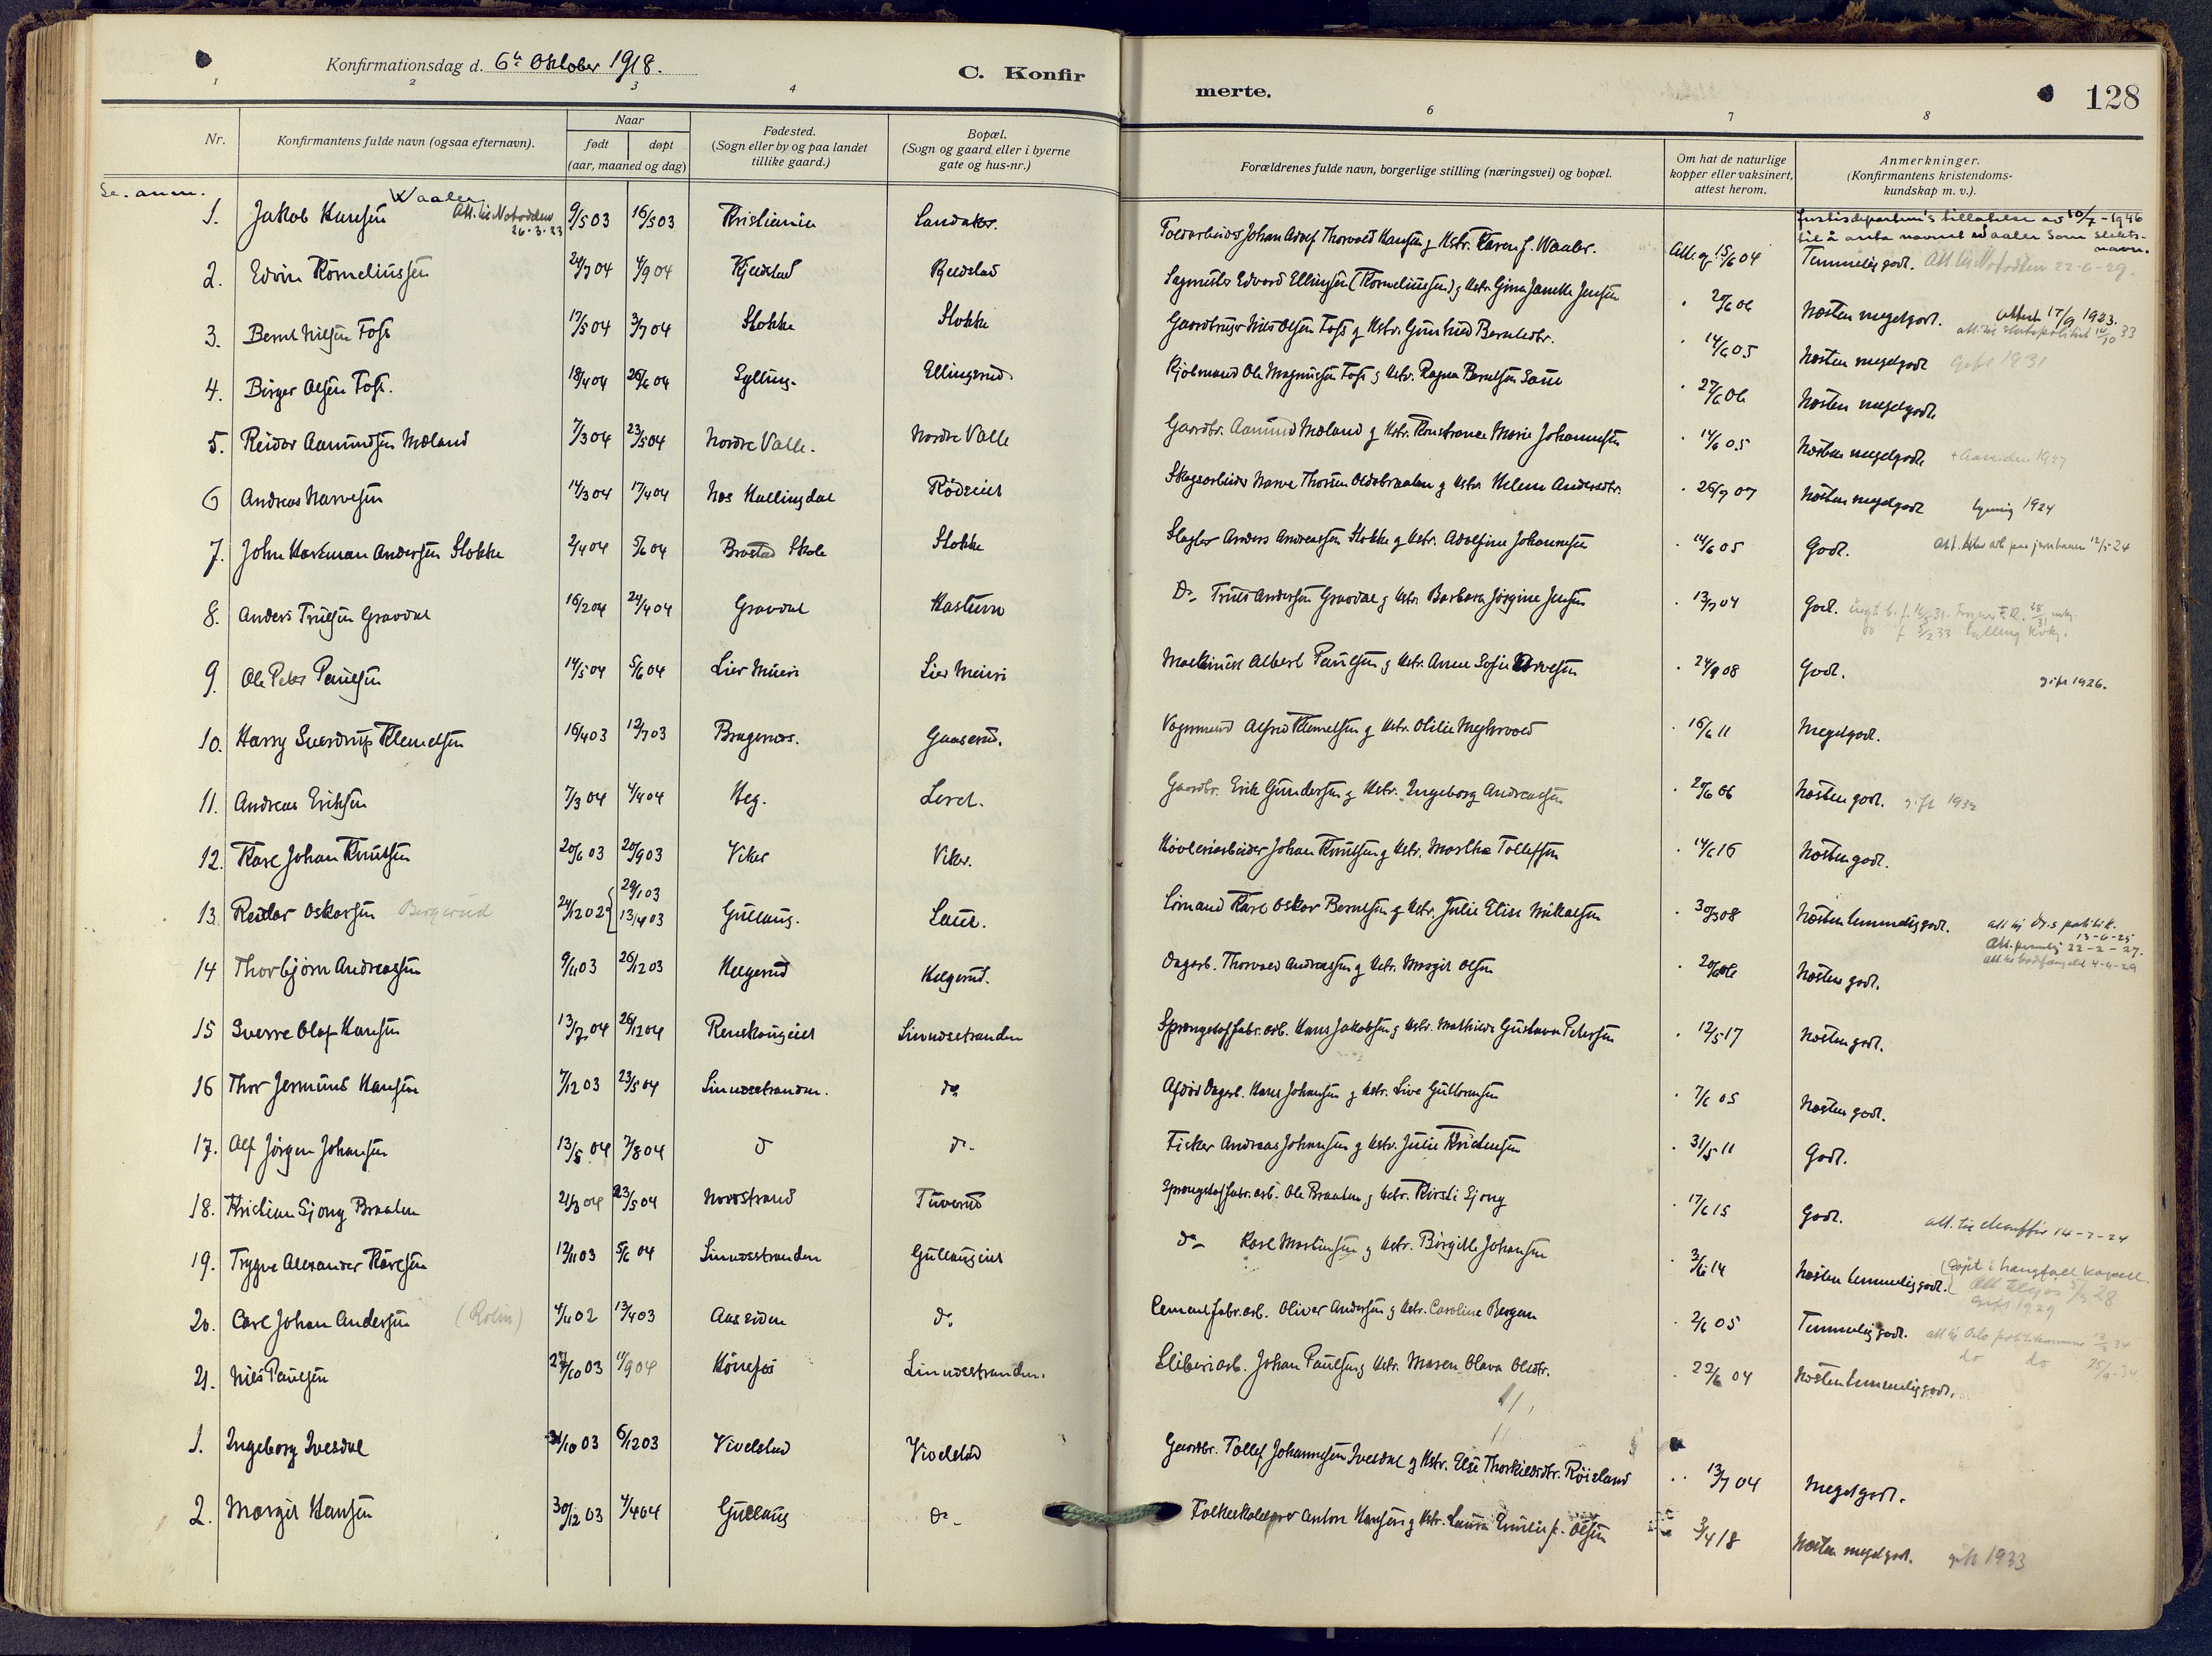 Konfirmationsdag d. 6te Oktober 1918.
C. Konfirmerte.
128
1 2 3 4 6 7 8
Nr.
Konfirmantens fulde navn (ogsaa efternavn).
Naar
født
døpt
(aar, maaned og dag)
Fødested.
(Sogn eller by og paa landet
tillike gaard.)
Bopæl.
(Sogn og gaard eller i byerne
gate og hus-nr.)
Forældrenes fulde navn, borgerlige stilling (næringsvei) og bopæl.
Om hat de naturlige
kopper eller vaksinert,
attest herom.
Anmerkninger.
(Konfirmantens kristendoms-
kundskap m. v.).
Se. anm.
Waaler
Att. til Notodden
26-3-23
Justisdepartem's tillatelse av 10/7-1946
til å anta navnet Waaler som slekts-
navn.
1. Jakob Hansen 9/5 03 16/5 03 Kristiania Landaker. Johan Adolf Thorvald Hansen g Hstr. Karen J. Waaler. Att. af 15/6 04 Temmelig godt. Att. til Notodden 22-6-29.
2. Edvin Korneliussen 24/7 04 4/9 04 Kjeldstad Kjeldstad Sagmester Edvard Ellingsen (Korneliussen) g Hstr. Gina Janette Jensen 20/6 06 Næsten megetgodt. attest 17/9 1923.
att. til statspolitiet 10/10 33
3. Bernt Nilsen Foss 17/5 04 3/7 04 Stokke Stokke Gaardbruger Nils Olsen Foss g Hstr. Gunhild Berntsdtr. 14/6 05 Næsten megetgodt gift 1931
4. Birger Olsen Foss. 18/4 04 26/6 04 Sylling. Ellingsrud. Ole Magnussen Foss g Hstr. Ragna Berntsen 27/6 06 Næsten megetgodt
5. Reidar Aamundsen Mæland 7/3 04 23/5 04 Nordre Valle. Nordre Valle Gaardbr. Aamund Mæland g Hstr. Konstance Marie Johannesen 14/6 05 Næsten megetgodt
6 Andreas Narvesen 14/3 04 17/4 04 Nes Hallingdal Skogsarbeider Narve g Hstr. Helene Andersdtr. 26/9 07 Næsten megetgodt 1924
7. John Harsman Andersen Stokke 2/4 04 5/6 04 Brastad Skole Stokke Slagter Anders Andreassen Stokke g Hstr. Adolfine Johannesen 14/6 05 Godt. 12/5 24
8. Anders Trulsen Gravdal 16/2 04 24/4 04 Gravdal Do Truls Andersen Gravdal g Hstr. Barbara Jørgine Jensen 13/7 04 Godt.
9. Ole Peter Paulsen 14/5 04 5/6 04 Lier Meieri Lier Meieri Maskinist Albert Paulsen g Hstr. Anne Sofie 24/9 08 Godt. gift 1926.
10. Harry Sverdrup Klemetsen 16/4 03 12/7 03 Bragernes. Gaaserud. Vognmand Alfred Klemetsen g Hstr. Otilie 16/6 11 Megetgodt.
11. Andreas Eriksen 7/3 04 4/4 04 Heg. Gaardbr. Erik Gundersen g Hstr. Ingeborg Andreassen 20/6 06 Næsten godt. gift 1932
12. Karl Johan Knutsen 20/6 03 20/9 03 Viker Viker. Høvleriarbeider Johan Knutsen g Hstr. Martha Tollefsen 14/6 16 Næsten godt.
13. Reidar Oskarsen Bergerud 24/12 02 29/1 03
13/4 03 Gullaug. Karl Oskar Berntsen g Hstr. Julie Elise Mikalsen 30/3 08 Næsten temmelig godt.
13-6-25
22-2-27.
4-9-29
14 Thorbjørn Andreassen 9/11 03 26/12 03 Helgerud Helgerud. Dagarb. Thorvald Andreassen g Hstr. Margit Olsen 20/6 06 Næsten godt.
15 Sverre Olaf Hansen 13/7 04 26/12 04 Linnesstranden Sprengstoffabr.arb. Hans Jakobsen g Hstr. Mathilde Gustava Petersen 12/5 17 Næsten godt.
16 Thor Jermund Hansen 7/12 03 23/5 04 Linnesstranden. do Afdød Dagarb. Hans Johansen g Hstr. Live Gulbransen 7/6 05 Næsten godt.
17. Alf Jørgen Johansen 13/5 04 7/8 04 d do Fisker Andreas Johansen g Hstr. Julie Kristensen 31/5 11 Godt.
18. Kristian Sjong Braaten 2/3 04 23/5 04 Nordstrand Tuverud Sprengstoffabr.arb. Ole Braaten g Hstr. Kirsti Sjong 17/6 15 Godt. att. til chauffør 14-7-24
19. Trygve Alexander Karlsen 12/11 03 5/6 04 Linnesstranden Gullaugeiet do Karl Martinsen g Hstr. Birgitte Johansen 3/6 14 Næsten temmelig godt. (Døpt i kapell
gift 1929
20. Carl Johan Andersen (Rolin) 4/11 02 13/4 03 Aassiden do. Cementfabr.arb. Oliver Andersen g Hstr. Caroline Bergan 2/6 05 Temmelig godt. att til Oslo politikammer
do do
21. Nils Paulsen 27/10 03 11/9 04 Hønefos Linnesstranden. Sliberiarb. Johan Paulsen g Hstr. Maren Olava Olsdtr. 22/6 04 Næsten temmelig godt.
1. Ingeborg Ivesdal 31/10 03 6/12 03 Vivelstad Vivelstad Gaardbr. Tollef Johannesen Ivesdal g Hstr. Else Thorkildsdtr. Røiseland 13/7 04 Megetgodt.
2. Margit Hansen 30/12 03 4/4 04 Gullaug do Folkeskolelærer Anton Hansen g Hstr. Laura Emilie f. Olsen 3/4 18 Næsten megetgodt. gift 1933